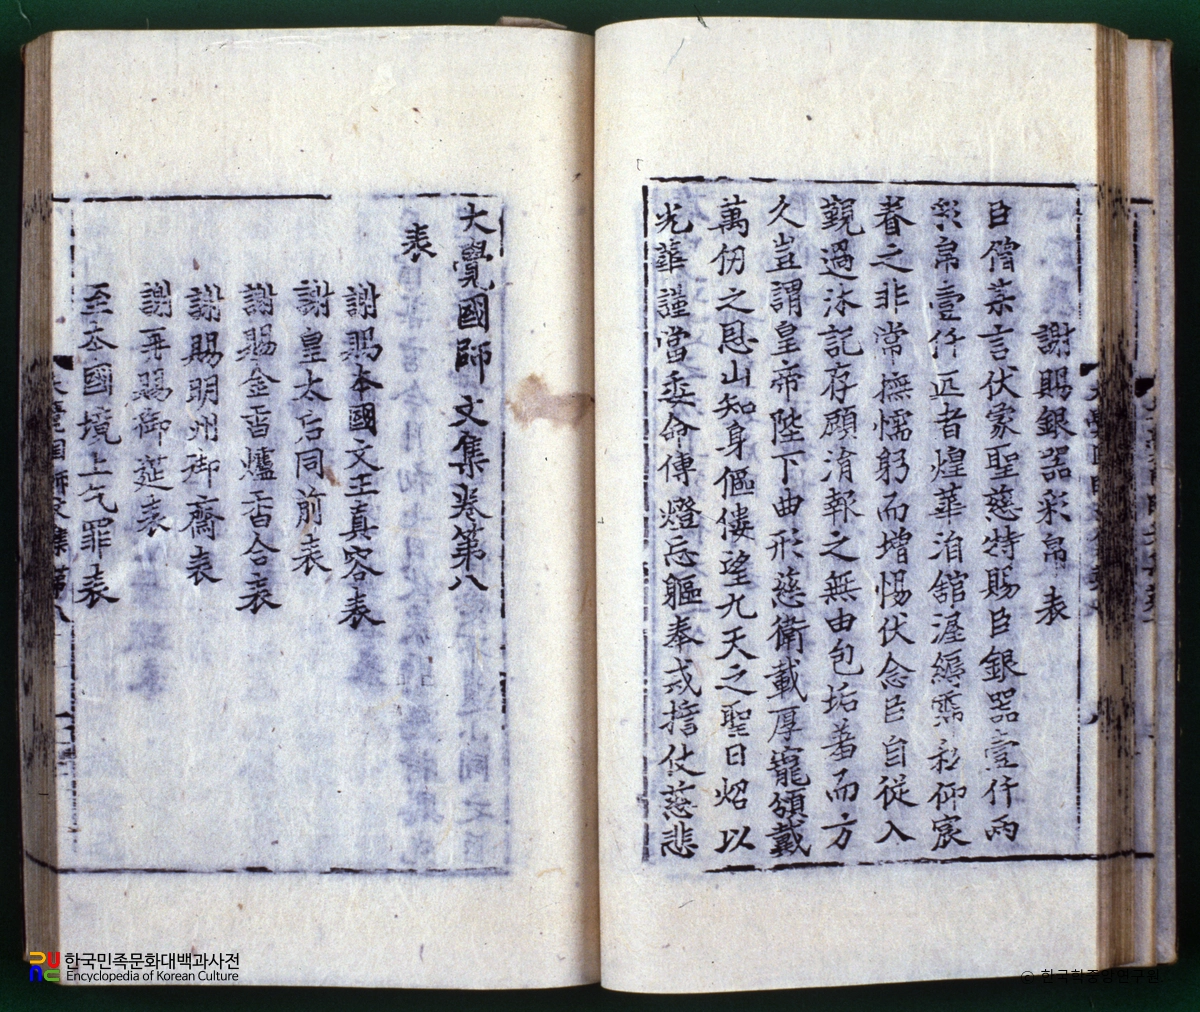 謝賜銀器彩帛表
臣僧某言伏蒙聖慈特賜臣銀器壹仟兩
彩帛壹仟疋者煌華洎舘渥縟霈私仰宸
眷之非常撫懦躬而增惕伏念臣自從入
覲過沐記存顧消報之無由包垢蓄而方
久豈謂皇帝陛下曲形慈衛載厚寵頒戴
萬仞之恩山知身傴僂望九天之聖日炤以
光華謹當委命傳燈忘軀奉戒擔仗慈悲
大覺國師文集卷第八
表
謝賜本國文王真容表
謝皇太后同前表
謝賜金香爐香合表
謝賜明州御齋表
謝再賜御莚表
至本國境上乞罪表
한국민족문화대백과사전
Encyclopedia of Korean Culture
© 한국학중앙연구원